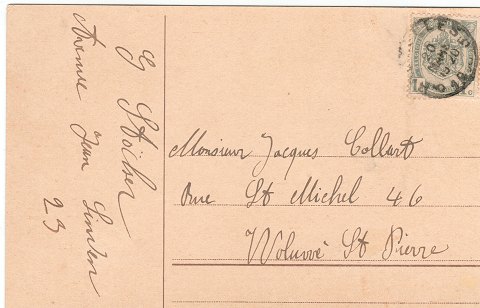 G Stöcher
Avenue Jean Linden
23
Monsieur Jacques Collart
Rue St Michel 46
Woluwé St Pierre
1